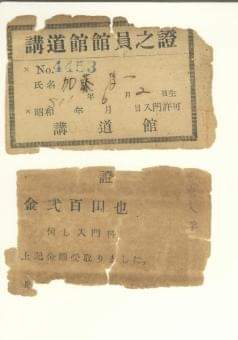 講道館館員之證
No. 4453
氏名 加藤 一
年 6月 2日生
昭和 年 月 日入門許可
講道館
證
金弐百円也
但し入門料
上記金額受取りました。